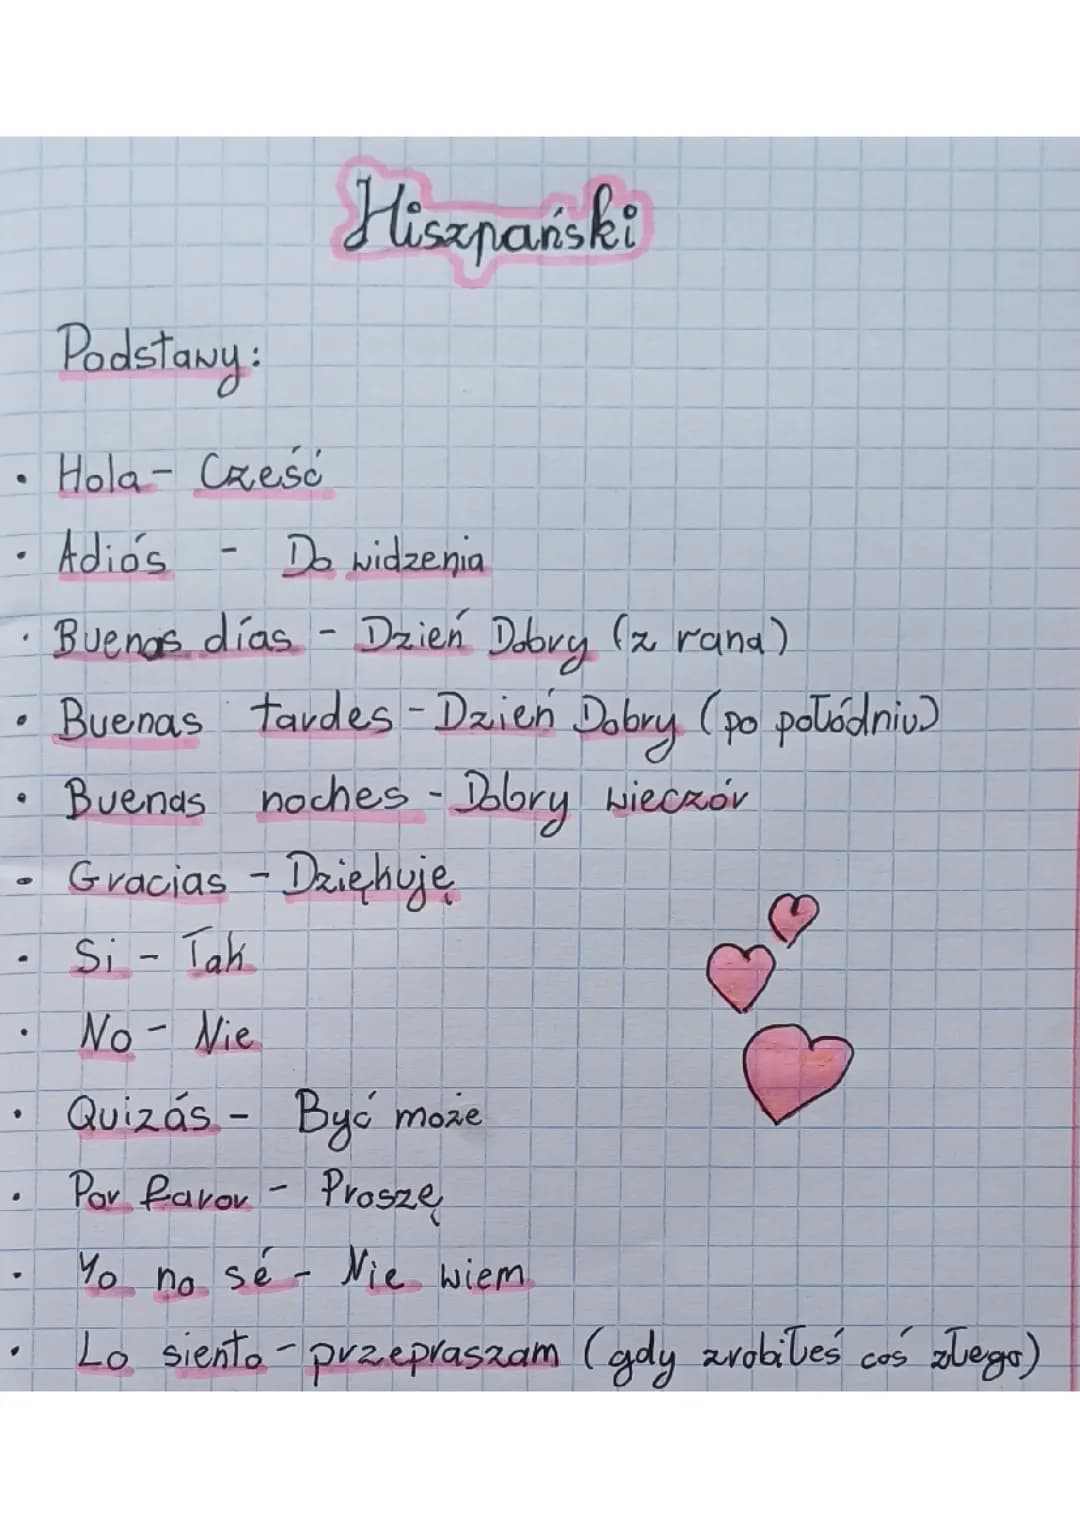 Hiszpański
Podstawy:
• Hola - Cześć
• Adiós - Do widzenia
• Buenas días - Dzień Dobry (z rana)
• Buenas tardes - Dzień Dobry (po połódniu)
• Buenas noches - Dobry wieczór
• Gracias - Dziękuję
• Si - Tak
• No - Nie
• Quizás - Być może
• Por favor - Proszę
• Yo no sé - Nie wiem
• Lo siento - przepraszam (gdy zrobiłeś coś złego)